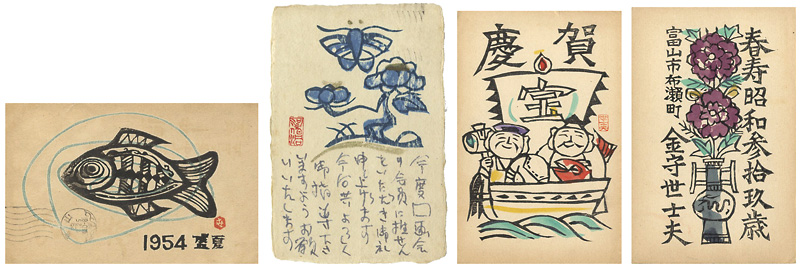 1954 盛夏
今度囗画会
の会員に推せん
をいただき御礼
申し上げます
今后共よろしく
御指導下さ
いますようお願
いいたします
慶賀
宝
春寿昭和参拾玖歳
富山市布瀬町
金守世士夫